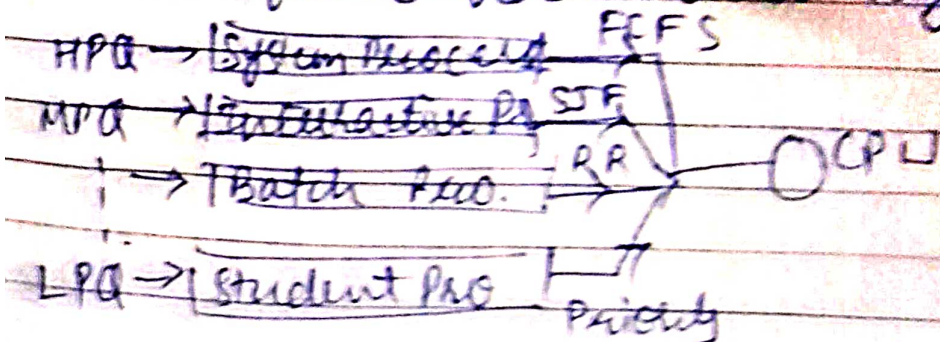 HPQ → System Process FCFS
MPQ → Interactive Pr SJF
→ Batch Pro. RR CPU
LPQ → Student Pro
Priority